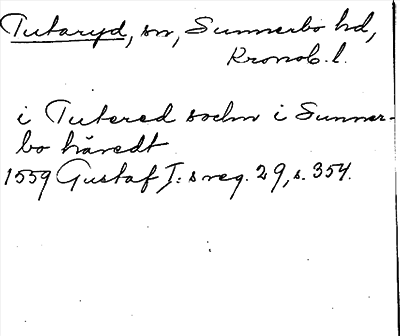 Tutaryd, sn, Sunnerbo hd,
Kronob. l.
i Tutered sochn i Sunner-
bo häredt
1559 Gustaf I:s reg. 29, s. 354.